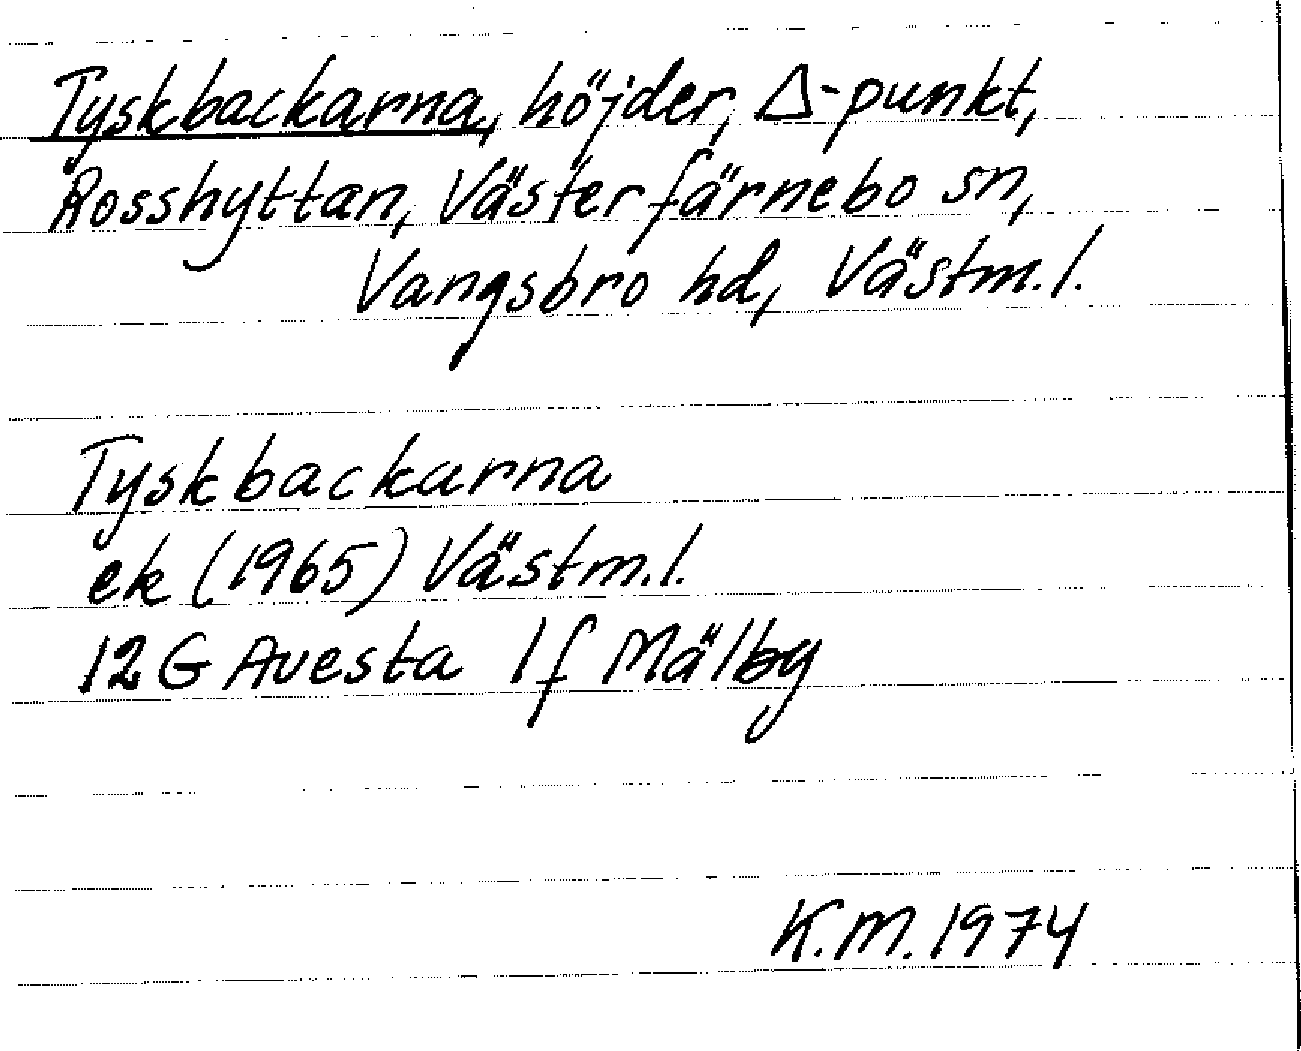 Tyskbackarna, höjder, Δ-punkt,
Rosshyttan, Västerfärnebo sn,
Vangsbro hd, Västm.l.
Tyskbackarna
ek (1965) Västm.l.
12 G Avesta 1 f Mälby
K.M. 1974